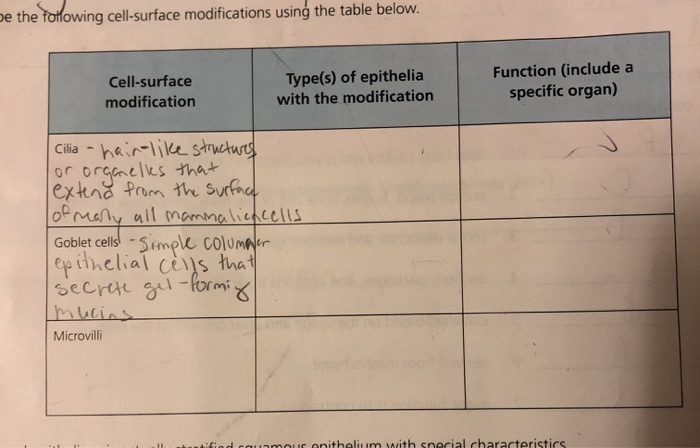 be the following cell-surface modifications using the table below.
Cell-surface modification
Type(s) of epithelia with the modification
Function (include a specific organ)
Cilia - hair-like structures
or organelles that
extend from the surface
of nearly all mammalian cells
Goblet cells - Simple columnar
epithelial cells that
secrete gel-forming
mucins
Microvilli
squamous epithelium with special characteristics